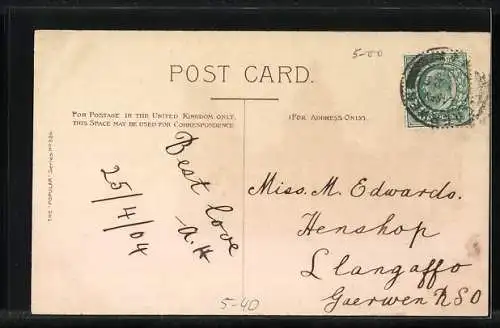 5-00
POST CARD.
FOR POSTAGE IN THE UNITED KINGDOM ONLY,
THIS SPACE MAY BE USED FOR CORRESPONDENCE
(FOR ADDRESS ONLY).
THE "POPULAR" Series
Best love
A.H
25/4/04
Miss. M. Edwards.
Henshop
Llangaffo
Gaerwen RSO
5-40